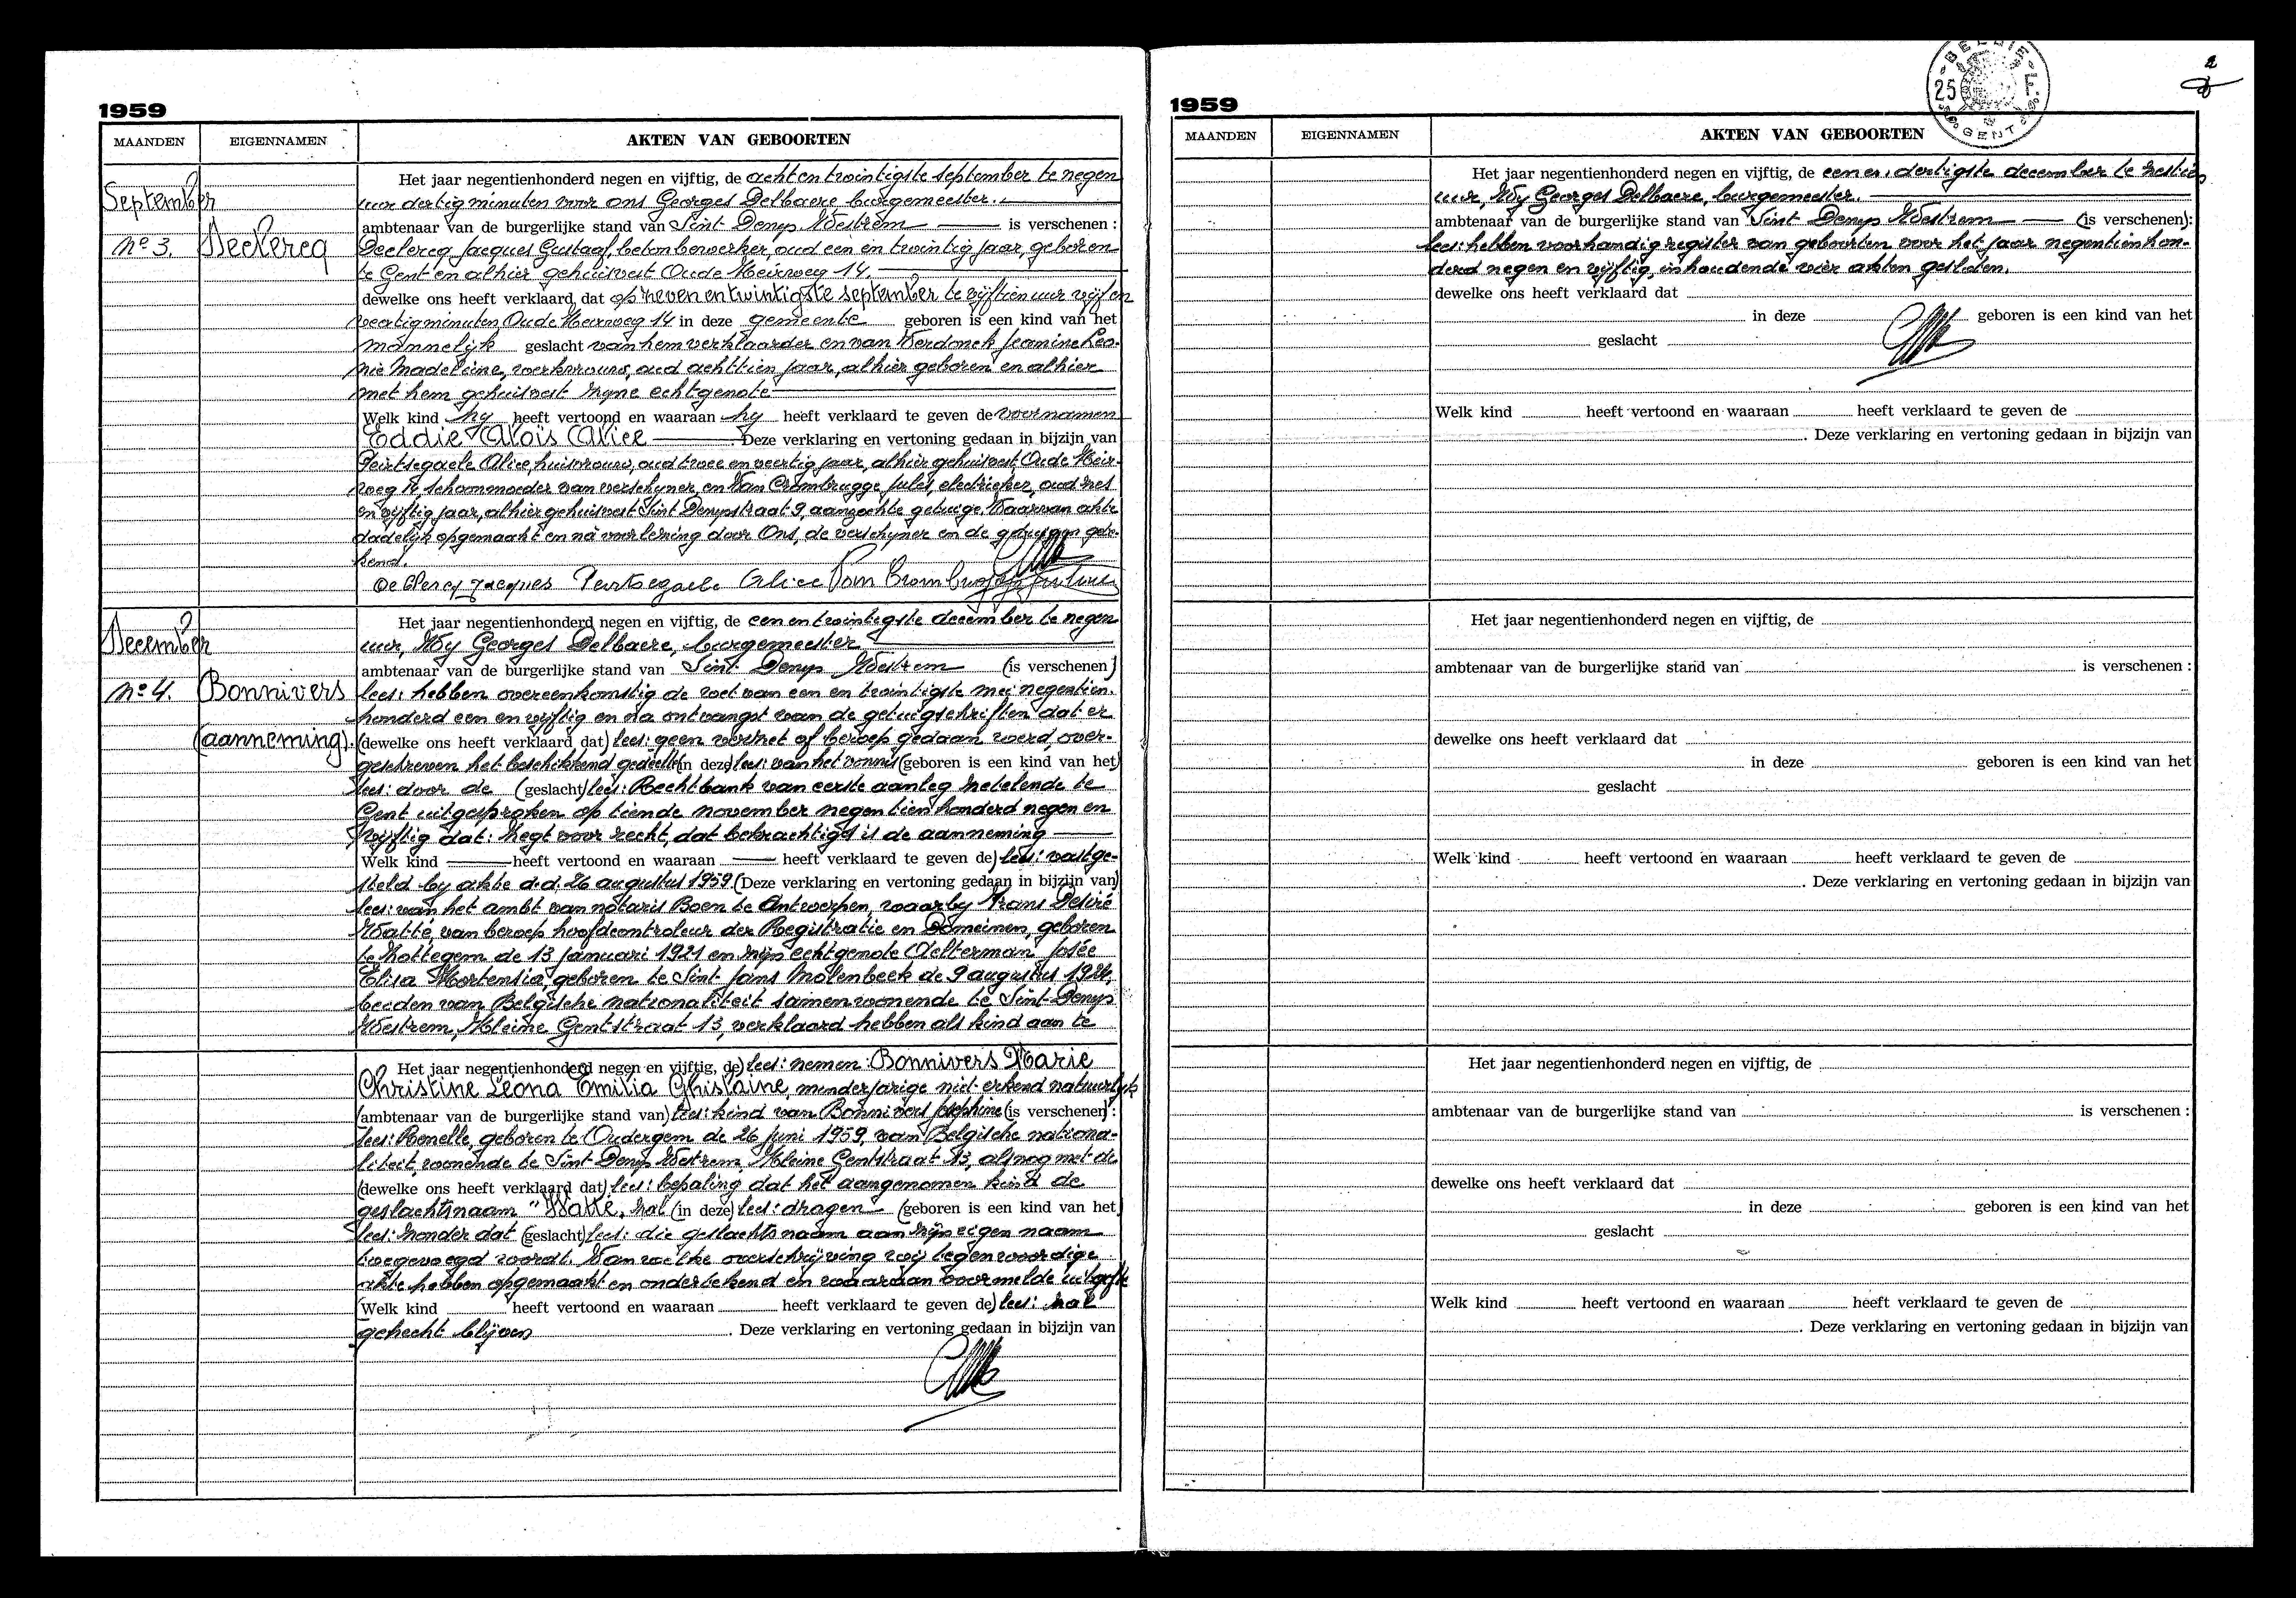 1959
MAANDEN EIGENNAMEN AKTEN VAN GEBOORTEN
Het jaar negentienhonderd negen en vijftig, de achtentwintigste september te negen
September
uur dertig minuten voor ons Georges Delbaere burgemeester.
ambtenaar van de burgerlijke stand van Sint Denys Westrem is verschenen :
No 3. Declercq Declercq Jacques Gustaaf, betonbewerker, oud een en twintig jaar, geboren
te Gent en alhier gehuisvest Oude Heirweg 14.
dewelke ons heeft verklaard dat op zeven en twintigste september te vijftien uur vijf en
veertig minuten, Oude Heirweg 14 in deze gemeente geboren is een kind van het
mannelijk geslacht van hem verklaarder en van Verdonck Jeanine Leo-
nie Madeleine, werkvrouw, oud achttien jaar, alhier geboren en alhier
met hem gehuisvest zyne echtgenote
Welk kind hy heeft vertoond en waaraan hy heeft verklaard te geven de voornamen
Eddie Aloïs Alice Deze verklaring en vertoning gedaan in bijzijn van
Peirtsegaele Alice, huisvrouw, oud twee en veertig jaar, alhier gehuisvest, Oude Heir-
weg 14, schoonmoeder van verschyner, en Van Crombrugge Jules, electrieker, oud zes
en vyftig jaar, alhier gehuisvest Sint Denysstraat 9, aanzochte getuige. Waarvan akte
dadelyk opgemaakt en nà voorlezing door Ons, de verschyner en de getuigen gete-
kend.
De Clercq Jacques Peirtsegaele Alice Van Crombrugge Jules
Het jaar negentienhonderd negen en vijftig, de een en twintigste december te negen
December
uur, Wy Georges Delbaere, burgemeester
ambtenaar van de burgerlijke stand van Sint Denys Westrem (is verschenen)
No 4. Bonnivers lees: hebben overeenkomstig de wet van een en twintigste mei negentien-
honderd een en vyftig en na ontvangst van de getuigschriften dat er
(aanneming). (dewelke ons heeft verklaard dat) lees: geen verzet of beroep gedaan werd, over-
geschreven het beschikkend gedeelte (in deze) lees: van het vonnis (geboren is een kind van het)
lees: door de (geslacht) lees: Rechtbank van eerste aanleg zetelende te
Gent uitgesproken op tiende november negentienhonderd negen en
vyftig dat: Zegt voor recht, dat bekrachtigd is de aanneming
Welk kind heeft vertoond en waaraan heeft verklaard te geven de) lees: vastge-
steld by akte d.d. 26 augustus 1959 (Deze verklaring en vertoning gedaan in bijzijn van)
lees: van het ambt van notaris Boen te Antwerpen, waarby Frans Desiré
Watté, van beroep hoofdcontroleur der Registratie en Domeinen, geboren
te Zottegem de 13 januari 1921 en zijn echtgenote Aelterman Josée
Elisa Hortensia, geboren te Sint Jans Molenbeek de 9 augustus 1924,
beiden van Belgische nationaliteit samenwonende te Sint-Denys
Westrem, Kleine Gentstraat 13, verklaard hebben als kind aan te
Het jaar negentienhonderd negen en vijftig, de) lees: nemen: Bonnivers Marie
Christine Léona Emilia Ghislaine, minderjarige niet-erkend natuurlyk
(ambtenaar van de burgerlijke stand van) lees: kind van Bonnivers Josephine (is verschenen) :
lees: Renelle, geboren te Oudergem de 26 juni 1959, van Belgische nationa-
liteit, wonende te Sint-Denys Westrem, Kleine Gentstraat 13, alsnog met de
(dewelke ons heeft verklaard dat) lees: bepaling dat het aangenomen kind de
geslachtsnaam "Watté, zal (in deze) lees: dragen (geboren is een kind van het)
lees: zonder dat (geslacht) lees: die geslachtsnaam aan zijn eigen naam
toegevoegd wordt. Van welke overschrijving wij tegenwoordige
akte hebben opgemaakt en ondertekend en waaraan voormelde uitgifte
(Welk kind heeft vertoond en waaraan heeft verklaard te geven de) lees: zal
gehecht blijven . Deze verklaring en vertoning gedaan in bijzijn van
BELGIE
25 F.
GENT
2
1959
MAANDEN EIGENNAMEN AKTEN VAN GEBOORTEN
Het jaar negentienhonderd negen en vijftig, de een en dertigste december te zestien
uur, Wy Georges Delbaere, burgemeester.
ambtenaar van de burgerlijke stand van Sint Denys Westrem (is verschenen):
lees: hebben voorhandig register van geboorten voor het jaar negentienhon-
derd negen en vyftig, inhoudende vier akten gesloten.
dewelke ons heeft verklaard dat
in deze geboren is een kind van het
geslacht
Welk kind heeft vertoond en waaraan heeft verklaard te geven de
. Deze verklaring en vertoning gedaan in bijzijn van
Het jaar negentienhonderd negen en vijftig, de
ambtenaar van de burgerlijke stand van is verschenen :
dewelke ons heeft verklaard dat
in deze geboren is een kind van het
geslacht
Welk kind heeft vertoond en waaraan heeft verklaard te geven de
. Deze verklaring en vertoning gedaan in bijzijn van
Het jaar negentienhonderd negen en vijftig, de
ambtenaar van de burgerlijke stand van is verschenen :
dewelke ons heeft verklaard dat
in deze geboren is een kind van het
geslacht
Welk kind heeft vertoond en waaraan heeft verklaard te geven de
. Deze verklaring en vertoning gedaan in bijzijn van